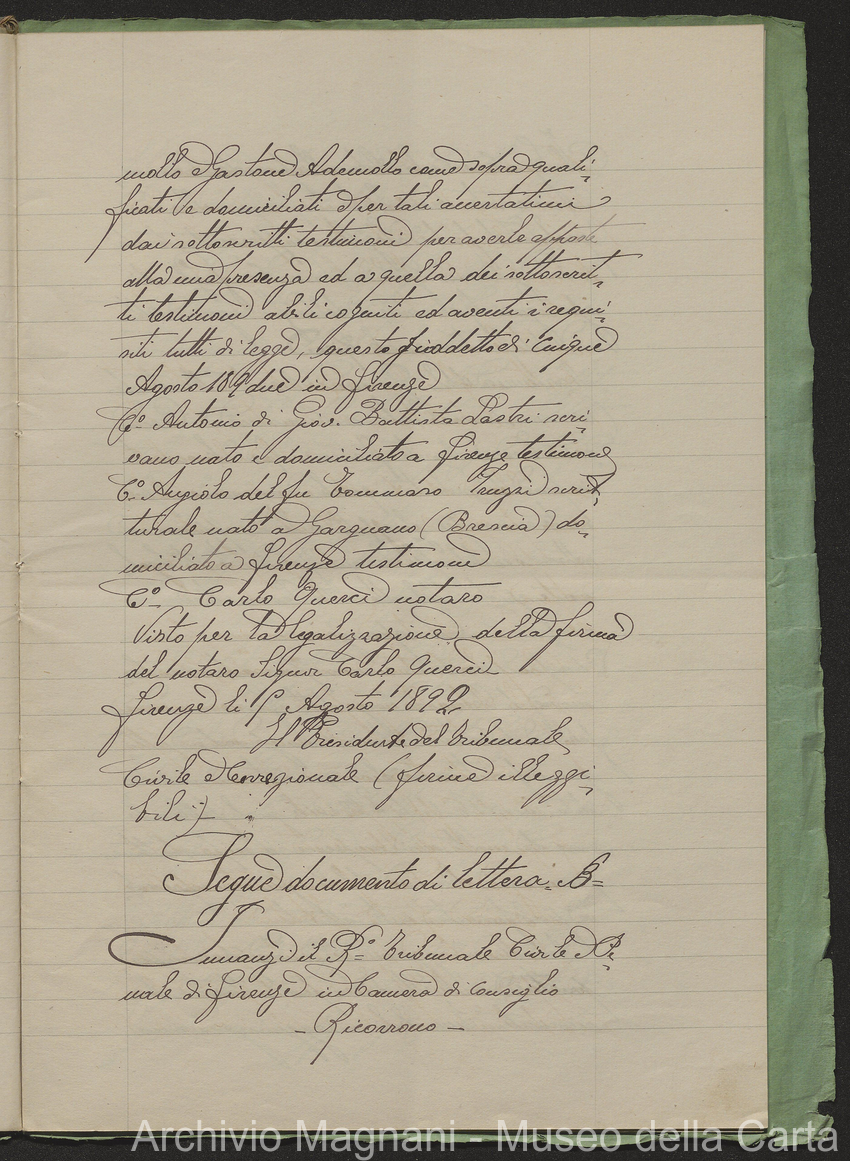 mollo e Gastone Ademollo come sopra quali=
ficati e domiciliati e per tali accertatimi
dai sottoscritti testimoni per averle apposte
alla mia presenza ed a quella dei sottoscrit=
ti testimoni abili cogniti ed aventi i requi=
siti tutti di legge, questo suddetto di cinque
Agosto 189due in Firenze
Antonio di Giov. Battista Lastri scri=
vano nato e domiciliato a Firenze testimone
Angiolo del fu Tommaso scrit=
turale nato a Gargnano (Brescia) do=
miciliato a Firenze testimone
Carlo Querci notaro
Visto per la legalizzazione della firma
del notaro Signor Carlo Querci
Firenze li Agosto 1892
Il Presidente del Tribunale
Civile e Correzionale (firme illeggi=
bili)
Segue documento di lettera = B =
Innanzi il R.o Tribunale Civile e Pe=
nale di Firenze in Camera di Consiglio
- Ricorrono -
Archivio Magnani - Museo della Carta